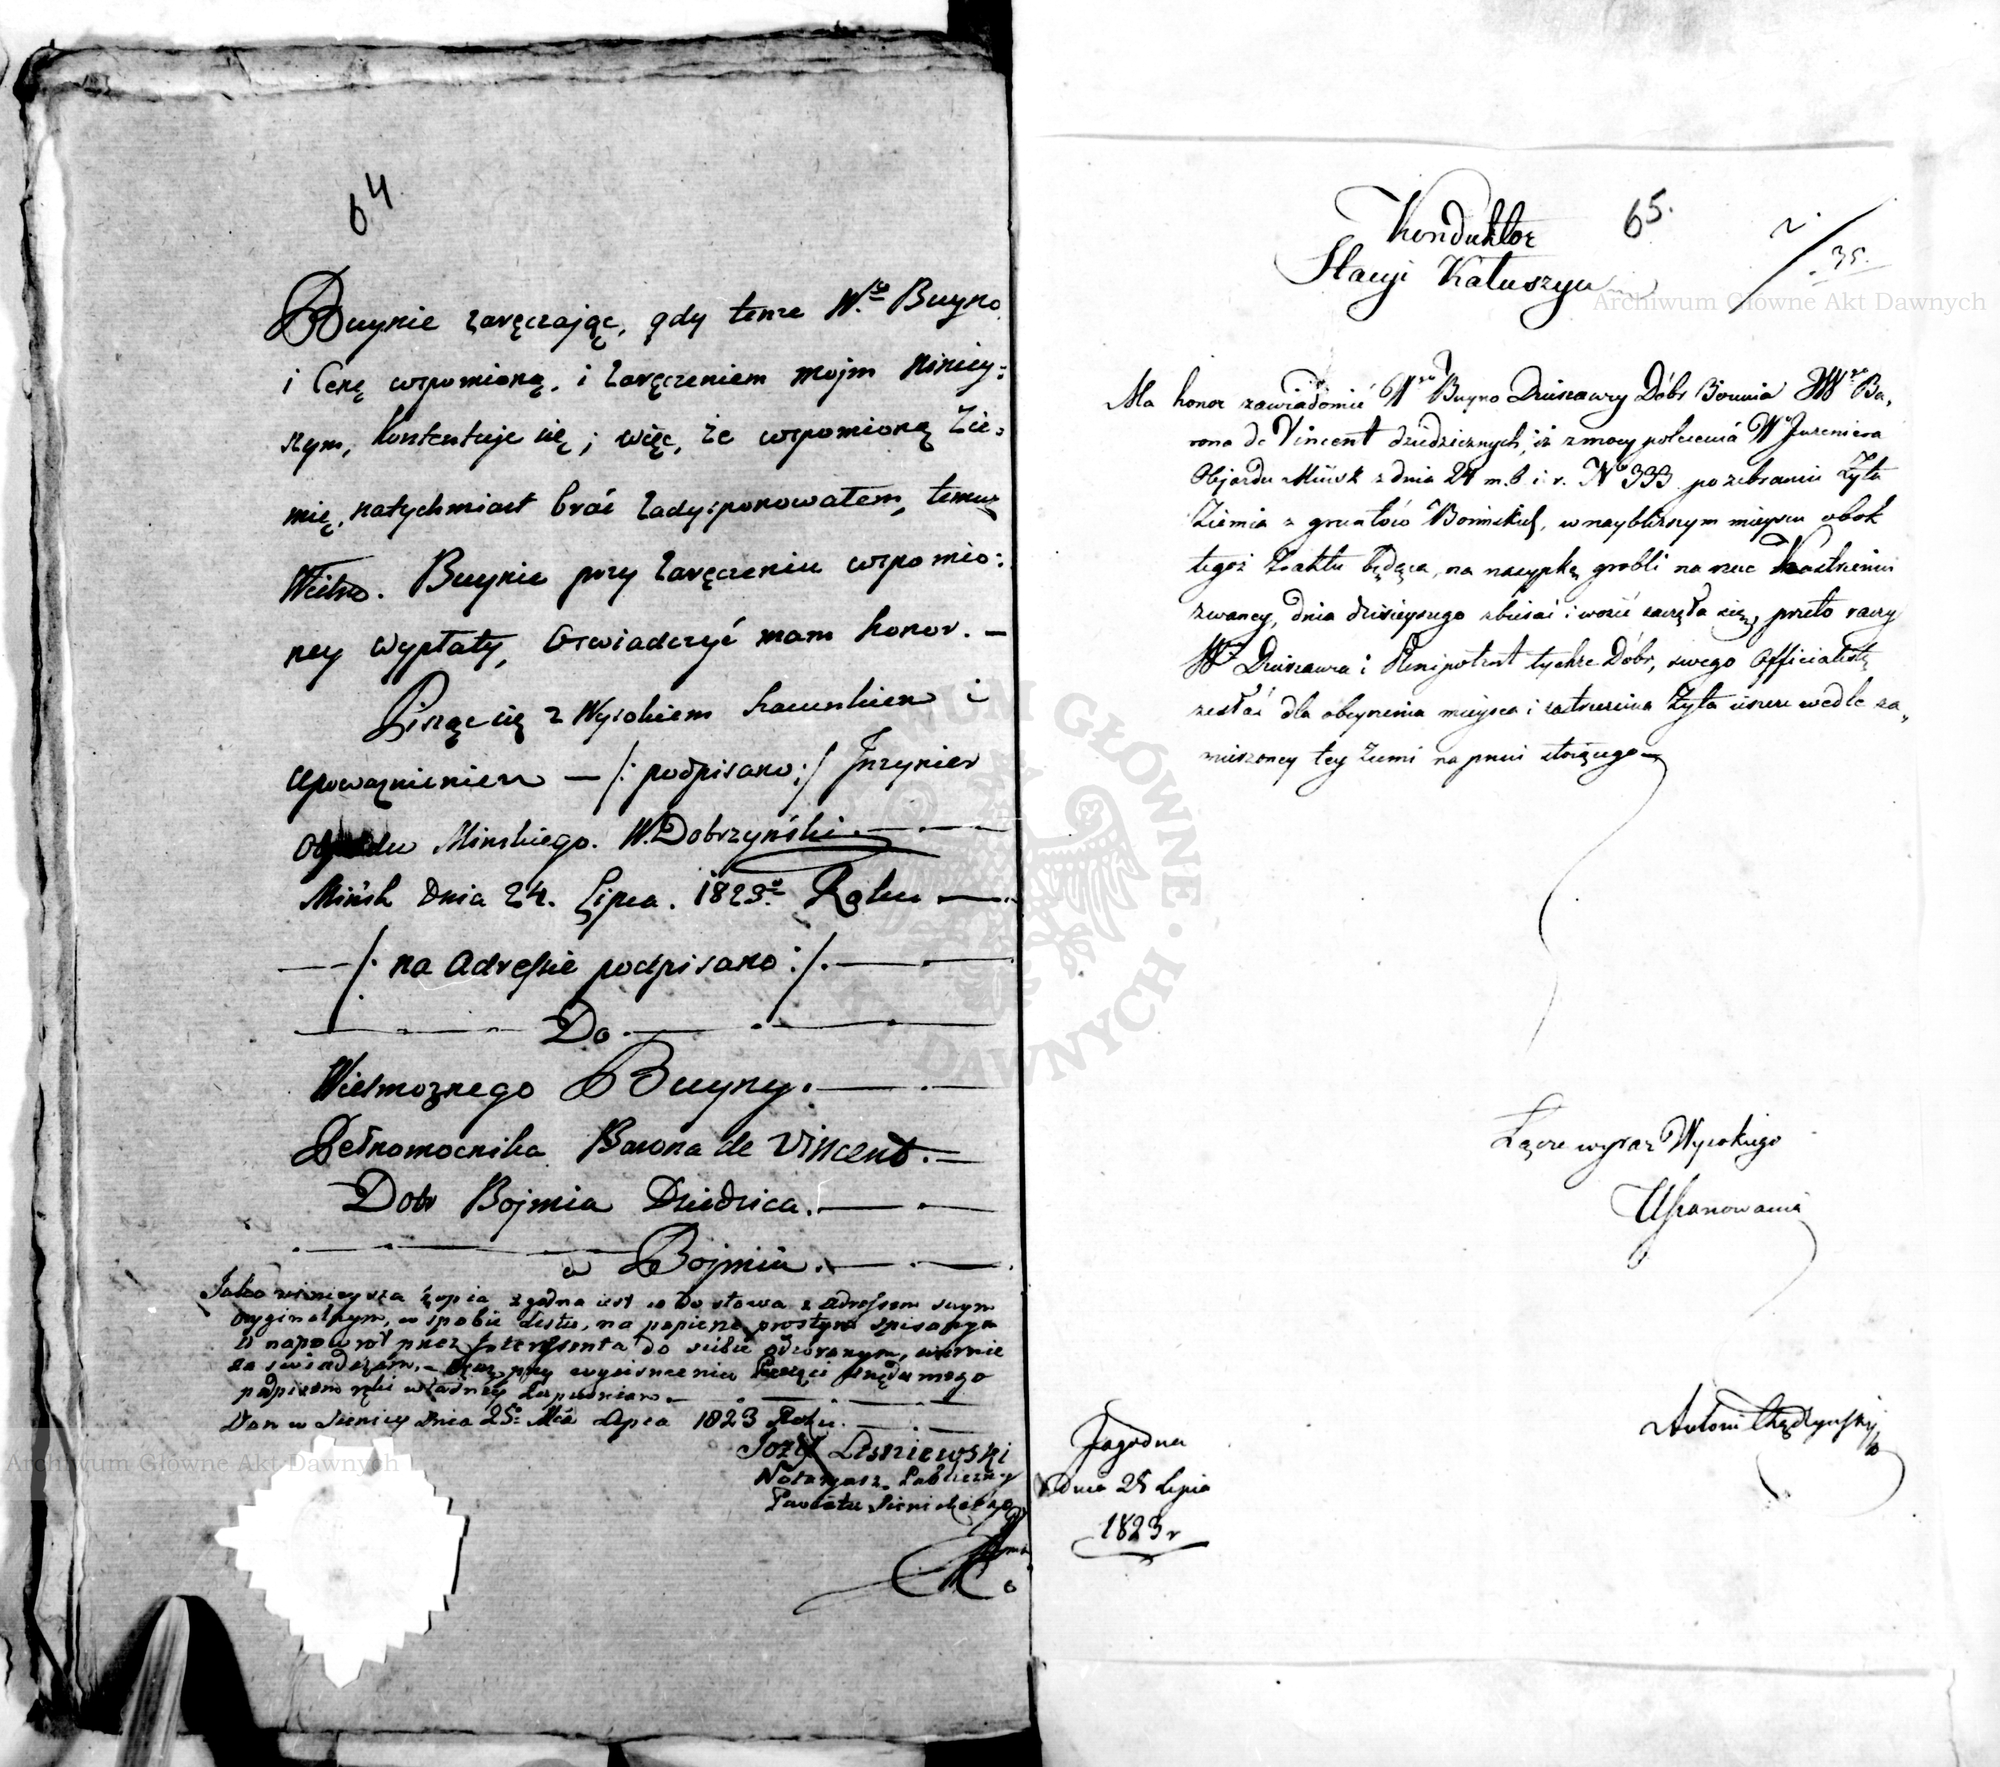 64
Buynie zaręczając, gdy tenże W.go Buyno
i Cenę wspomioną, i Zaręczeniem mojm niniey:
szym, kontentuje się; więc, że wspomioną Zie:
mię, natychmiast brać zadysponowałem, temuż
Wielmo. Buynie przy Zaręczeniu wspomio:
ney wypłaty, Oświadczyć mam honor. —
Pisząc się z Wysokiem Szacunkiem i
Upoważnieniem — /: podpisano :/ Inżynier
Objazdu Mińskiego. W. Dobrzyński
Mińsk Dnia 24. Lipca. 1823o Roku —
— /: na Adressie podpisano :/. —
Do
Wielmożnego Buyny.
Pełnomocnika Barona de Vincent. —
Dobr Bojmia Dziedzica.
w Bojmiu.
Jako ninieysza kopia zgodna iest co do słowa z Adressem swym
oryginalnym, w sposobie Listu, na papierze prostym spisanym
i napowrót przez Interesenta do siebie odebranym, wiernie
zaświadczam, — oraz przy wyciśnieniu Pieczęci Urzędowego
podpisem ręki własney
Dan w Siennicy dnia 25o Mca Lipca 1823 Roku.
Jozef Leśniewski
Notaryusz Publiczny
Powiatu Siennickiego
65.
2.
35.
Konduktor
Stacyi Kałuszyn
Archiwum Główne Akt Dawnych
Ma honor zawiadomić Wgo Buyno Dzierżawcy Dóbr Boimia JWgo Ba„
rona de Vincent dziedzicznych, iż z mocy polecenia Wo Inżeniera
Objazdu Mińsk z dnia 24 m. b. i r. No 333 po zebraniu Żyta
Ziemia z gruntów Boimskich, w naybliższym mieyscu obok
tegoż Traktu będąca, na nasypkę grobli na rzece Kostrzeniu
zwaney, dnia dzisieyszego zbierać i wozić zaczęła się, przeto raczy
W Dzierżawca i Plenipotent tychże Dóbr, swego Officialistę
zesłać dla obeyrzenia mieysca i Żyta wedle za„
tey Ziemi na pniu stoiącego —
Łącze wyraz Wysokiego
Uszanowania
Antoni
Jagodne
Dnia 25 Lipca
1823 r
ARCHIWUM GŁÓWNE AKT DAWNYCH
Archiwum Główne Akt Dawnych